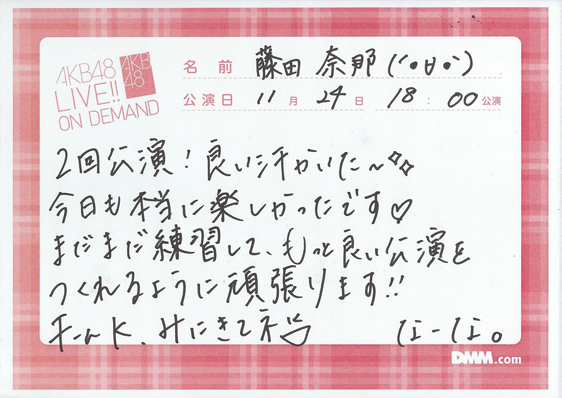 AKB48
LIVE!!
ON DEMAND
AKB
48
名前 藤田 奈那 (´•∀•`)
公演日 11月24日 18:00公演
2回公演!良い汗かいた〜✧✧
今日も本当に楽しかったです♡
まだまだ練習して、もっと良い公演を
つくれるように頑張ります!!
チームK、みにきてネ
なーな。
DMM.com